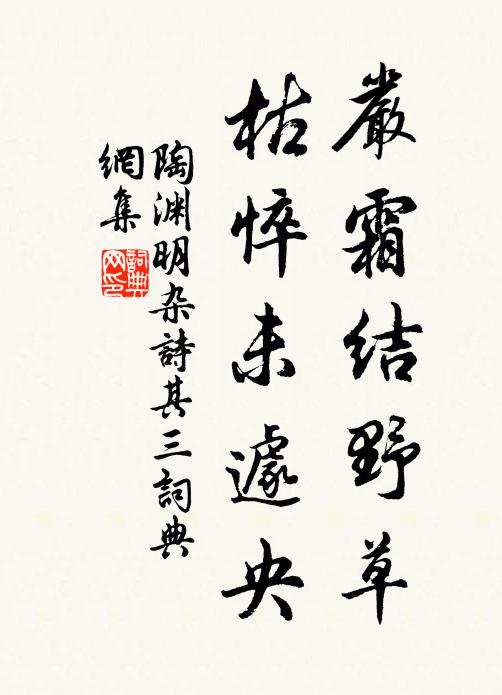 嚴霜結野草
枯悴未遽央
陶渊明杂詩其三詞典
網集
詞典
网印